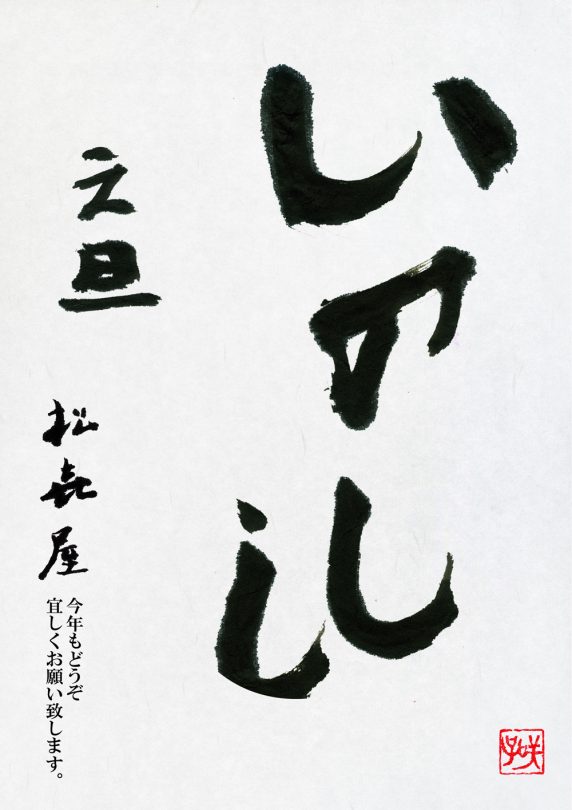 いのしし
元旦
松喜屋
今年もどうぞ
宜しくお願い致します。